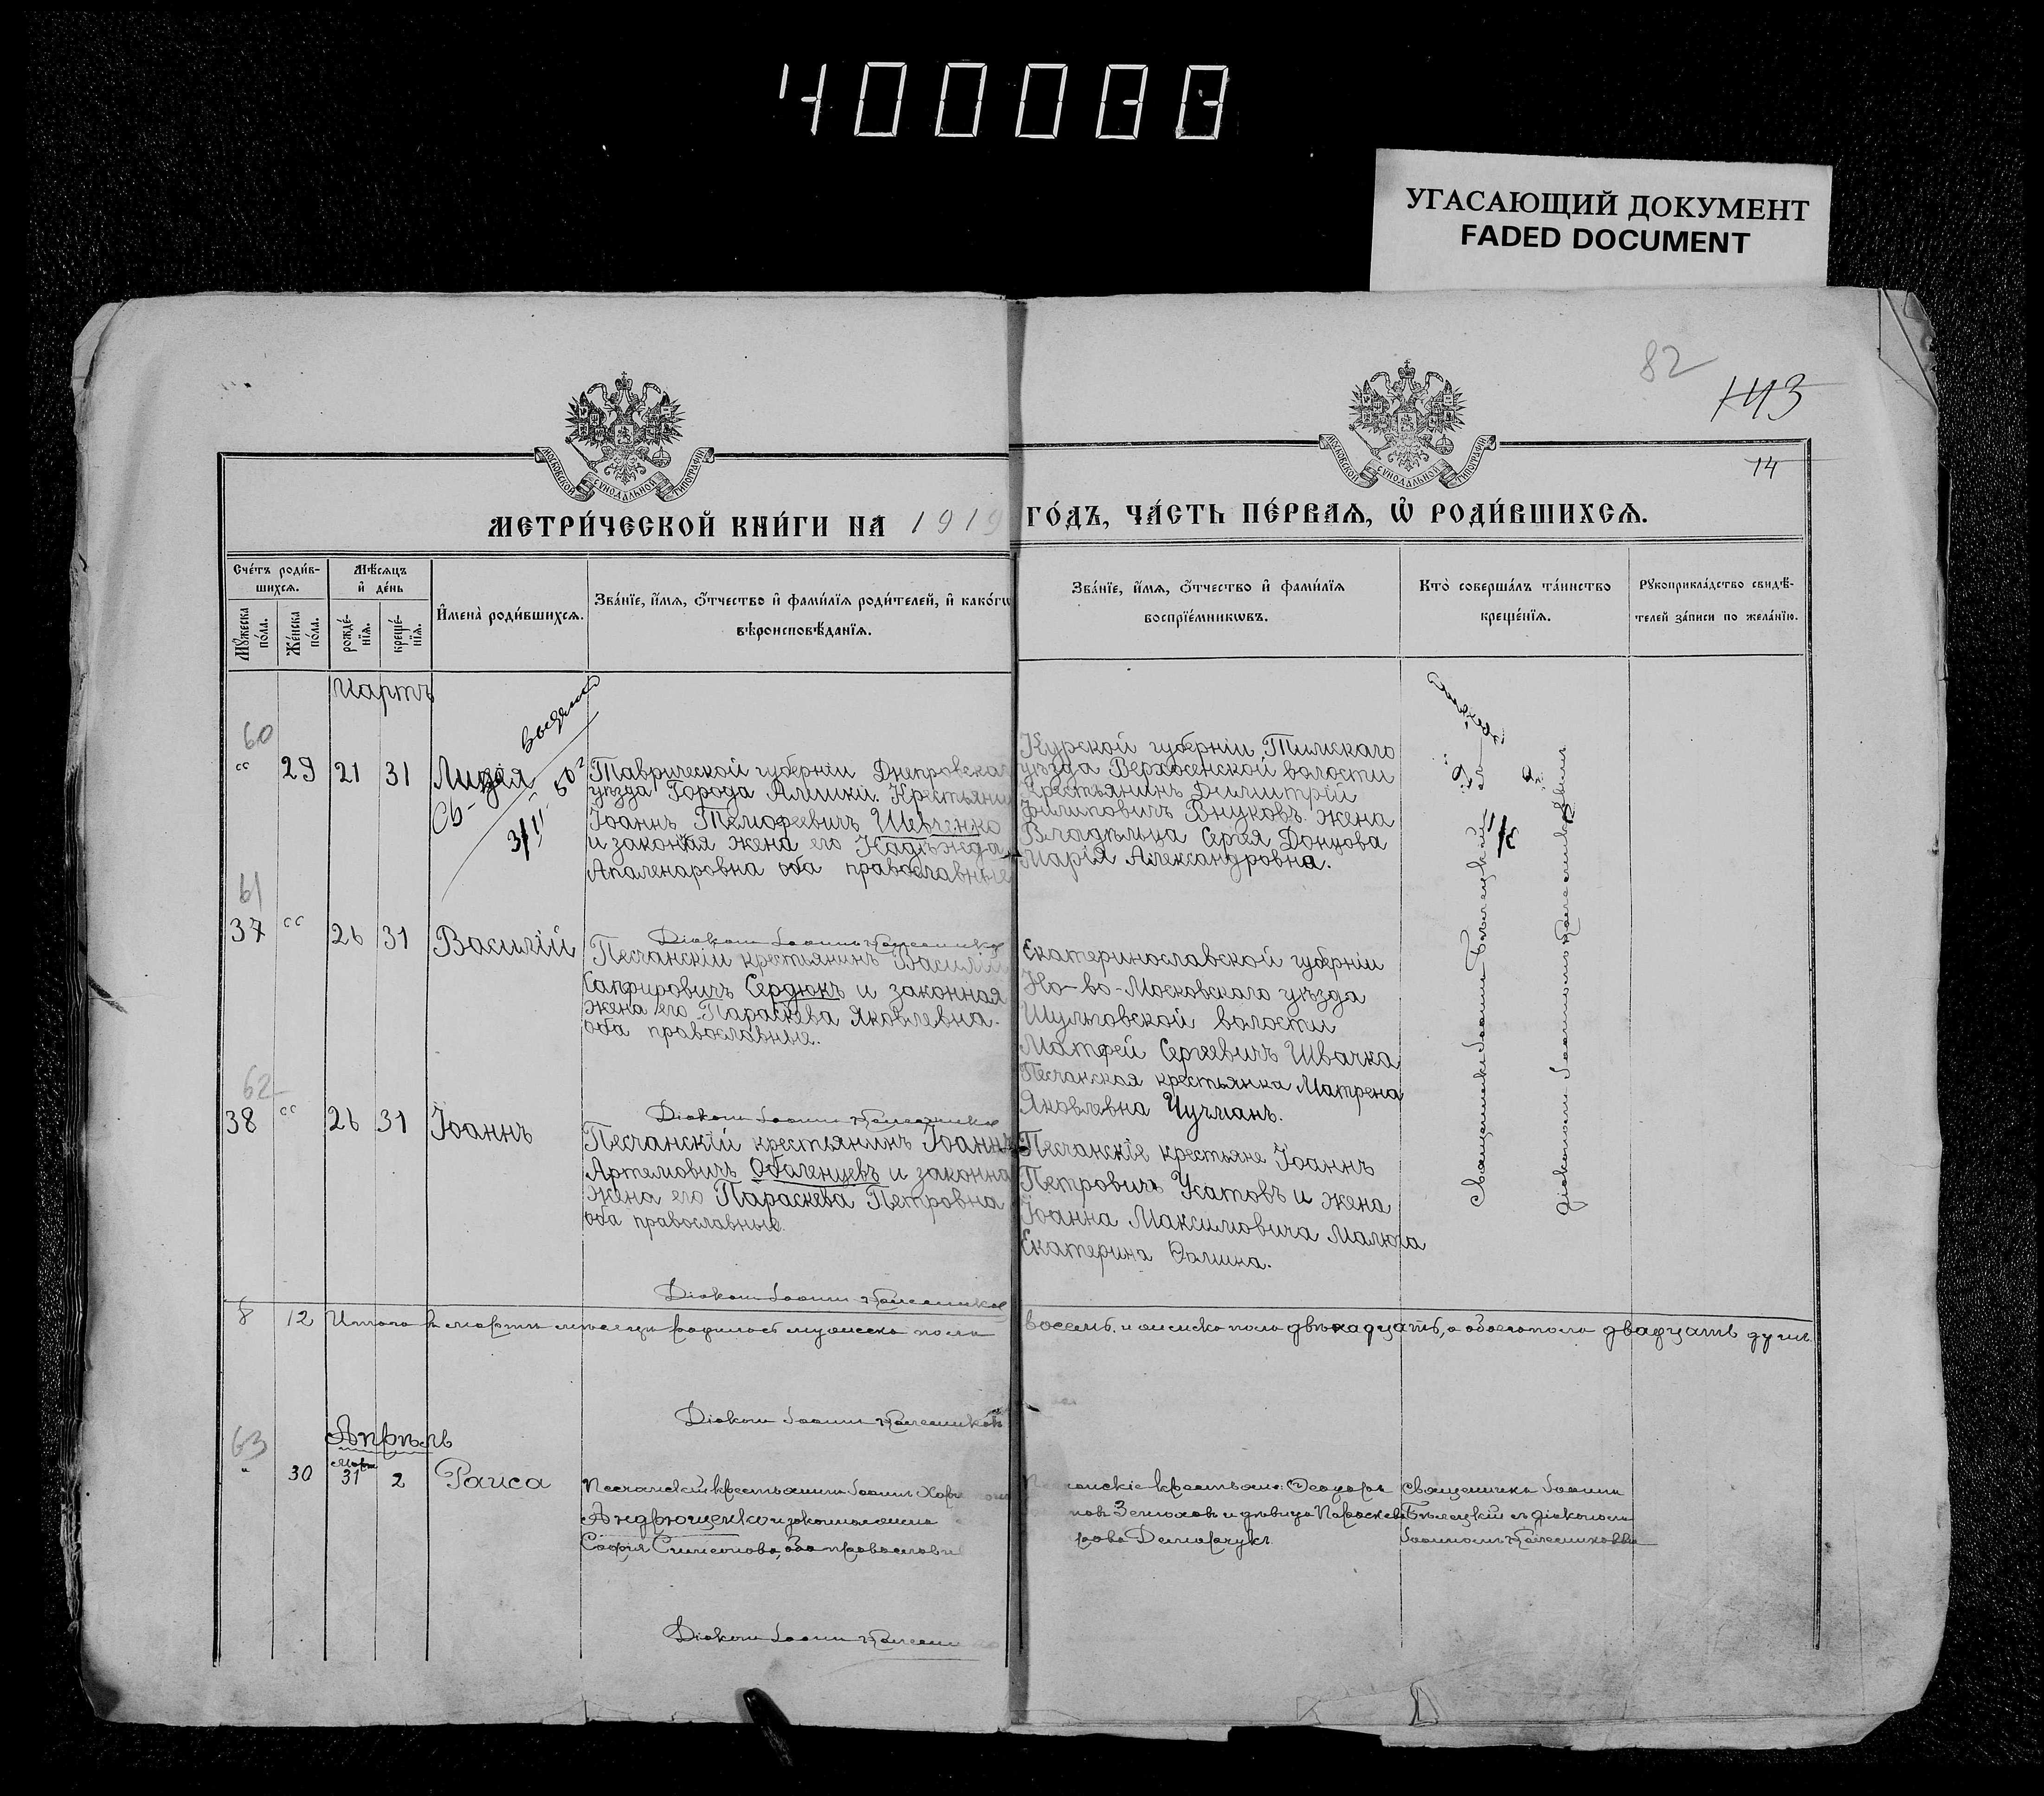 400033
УГАСАЮЩИЙ ДОКУМЕНТ
FADED DOCUMENT
82
143
14
МОСКОВСКОЙ СУНОДАЛЬНОЙ ТИПОГРАФІИ
МОСКОВСКОЙ СУНОДАЛЬНОЙ ТИПОГРАФІИ
МЕТРИ́ЧЕСКОЙ КНИ́ГИ НА 1919 ГО́ДЪ, ЧА́СТЬ ПЕ́РВАЯ, Ѡ РОДИ́ВШИХСЯ.
Сче́тъ роди́в-
шихся.
Мѣ́сяцъ
и҆ де́нь
Мꙋ́жеска по́ла.
Же́нска по́ла.
рожде́-
нїя.
креще́-
нїя.
И҆мена̀ роди́вшихся.
Зва́нїе, и҆́мя, ѻ҆́тчество и҆ фами́лїя роди́телей, и҆ како́гѡ
вѣроисповѣ́данїя.
Зва́нїе, и҆́мя, ѻ҆́тчество и҆ фами́лїя
воспрїе́мникѡвъ.
Кто̀ соверша́лъ та́инство
креще́нїя.
Рꙋкоприкла́дство свидѣ́-
телей за́писи по жела́нїю.
Мартъ
60
" 29 21 31 Лидія
Таврической губерніи Днепровскаг
уѣзда Города Алешки. Крестьянин
Іоаннъ Тимофеевичъ Шевченко
и законая жена его Надѣжда
Апаленаровна оба православные
Курской губерніи Тимскаго
уѣзда Верхосенской волости
Крестьянинъ Димитрій
Филиповичъ Внуковъ. Жена
Владѣльца Сергея Донцова
Марія Александровна.
61
37 " 26 31 Василій
Діаконъ Іоаннъ
Песчанскій крестьянинъ Василій
Сапфировичъ Сердюкъ и законная
жена его Параскева Яковлевна.
оба православные.
Екатеринославской губерніи
Но-во-Московскаго уѣзда
Шульговской волости
Матфей Сергеевичъ Швачка
Песчанская крестьянка Матрена
Яковлевна Чучманъ.
62
38 " 26 31 Іоаннъ
Діаконъ Іоаннъ
Песчанскій крестьянинъ Іоаннъ
Артемовичъ Обаленцевъ и законна
жена его Параскева Петровна
оба православные.
Песчанскіе крестьяне Іоаннъ
Петровичъ Усатовъ и жена
Іоанна Максимовича Малюга
Екатерина Фомина.
Діаконъ Іоаннъ
8 12 Итого въ мартѣ мѣсяцѣ родилось мужеска пола восемь, и женска пола двѣнадцать, а обоего пола двадцать душъ.
Діаконъ Іоаннъ
63
Апрѣль
Март
" 30 31 2 Раиса
Песчанскій крестьянинъ Іоаннъ
Андрющенко и законная жена
Софія Симеонова, оба православн
крестьяне: Ѳеодоръ
и дѣвица Параскева
Священникъ Іоаннъ
Бѣлецкій съ діакономъ
Діаконъ Іоаннъ